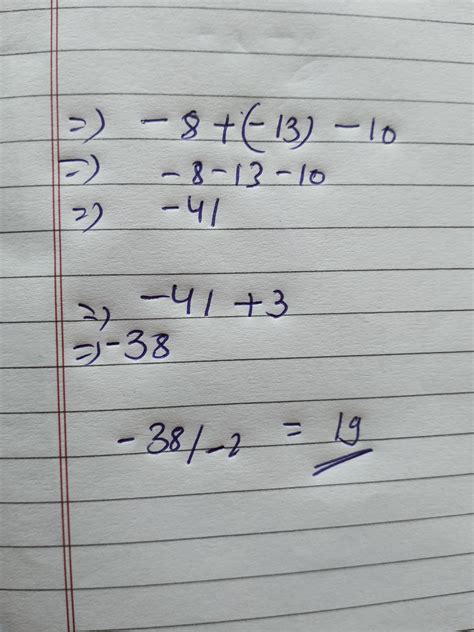 =) - 8 + (-13) - 10
=) - 8 - 13 - 10
=) - 41
=) - 41 + 3
=) - 38
- 38 / - 2 = 19